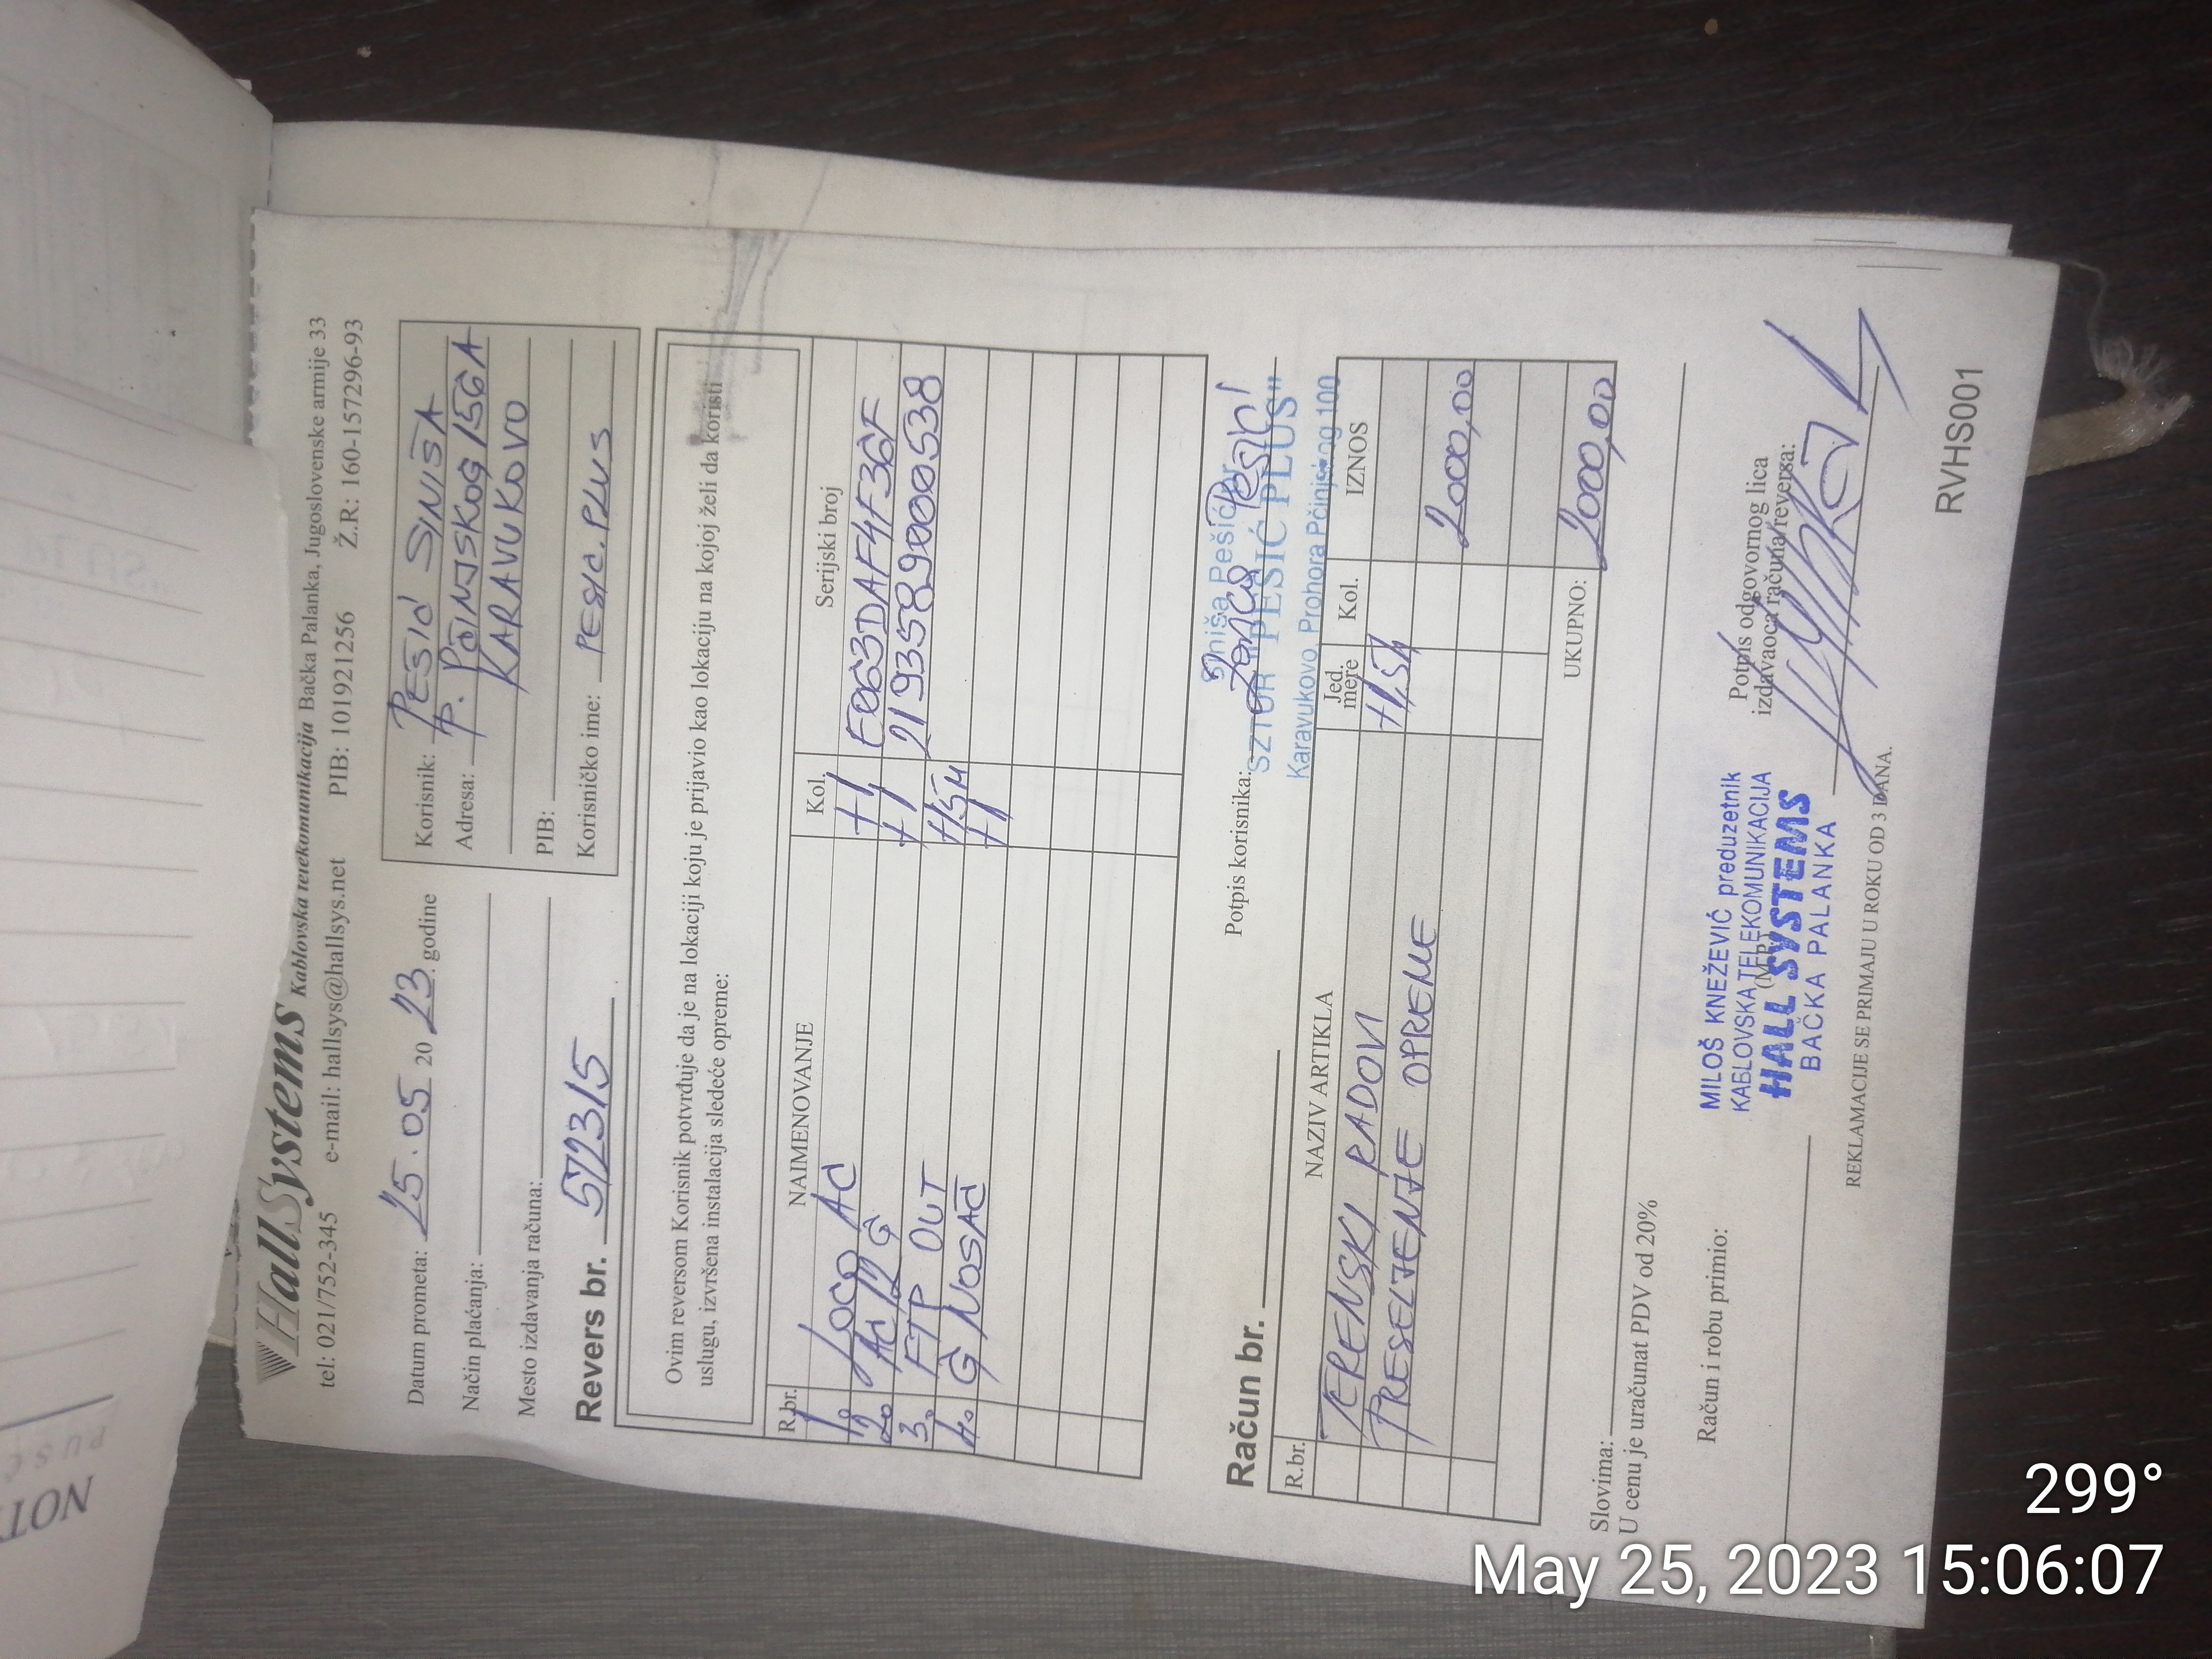 HallSystems Kablovska telekomunikacija Bačka Palanka, Jugoslovenske armije 33
tel: 021/752-345 e-mail: hallsys@hallsys.net PIB: 101921256 Ž.R.: 160-157296-93
Datum prometa: 25.05 2023. godine
Način plaćanja:
Mesto izdavanja računa:
Korisnik: PEŠIĆ SINIŠA
Adresa: P. PČINJSKOG 156A
KARAVUKOVO
PIB:
Korisničko ime: PESIC.PLUS
Revers br. 572315
Ovim reversom Korisnik potvrđuje da je na lokaciji koju je prijavio kao lokaciju na kojoj želi da koristi
uslugu, izvršena instalacija sledeće opreme:
R.br. NAIMENOVANJE Kol. Serijski broj
1. LOCO AC +1 E063DAF4F36F
2. AC 12 G +1 2193589000538
3. FTP OUT +15M
4. G NOSAČ +1
Potpis korisnika:
Siniša Pešić pr
SZTUR "PEŠIĆ PLUS"
Karavukovo, Prohora Pčinjskog 100
Račun br.
R.br. NAZIV ARTIKLA Jed. mere Kol. IZNOS
TERENSKI RADOVI
PRESELJENJE OPREME 2000,00
UKUPNO: 2000,00
Slovima:
U cenu je uračunat PDV od 20%
Račun i robu primio:
(M.P.)
MILOŠ KNEŽEVIĆ preduzetnik
KABLOVSKA TELEKOMUNIKACIJA
HALL SYSTEMS
BAČKA PALANKA
Potpis odgovornog lica
izdavaoca računa/reversa:
REKLAMACIJE SE PRIMAJU U ROKU OD 3 DANA.
RVHS001
299°
May 25, 2023 15:06:07